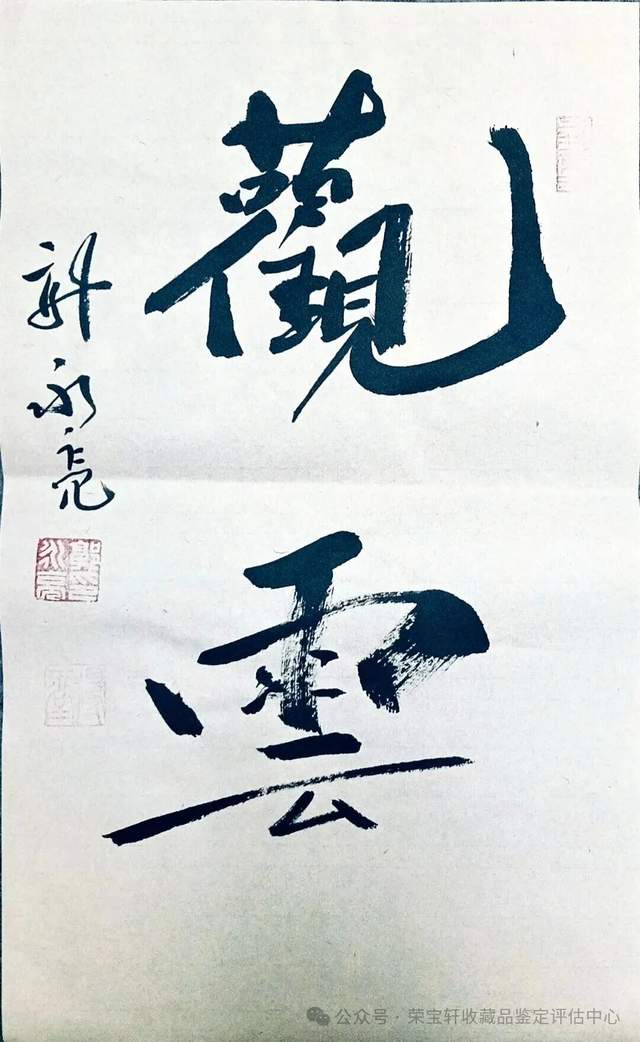 觀雲
郭永亮
公众号·荣宝轩收藏品鉴定评估中心